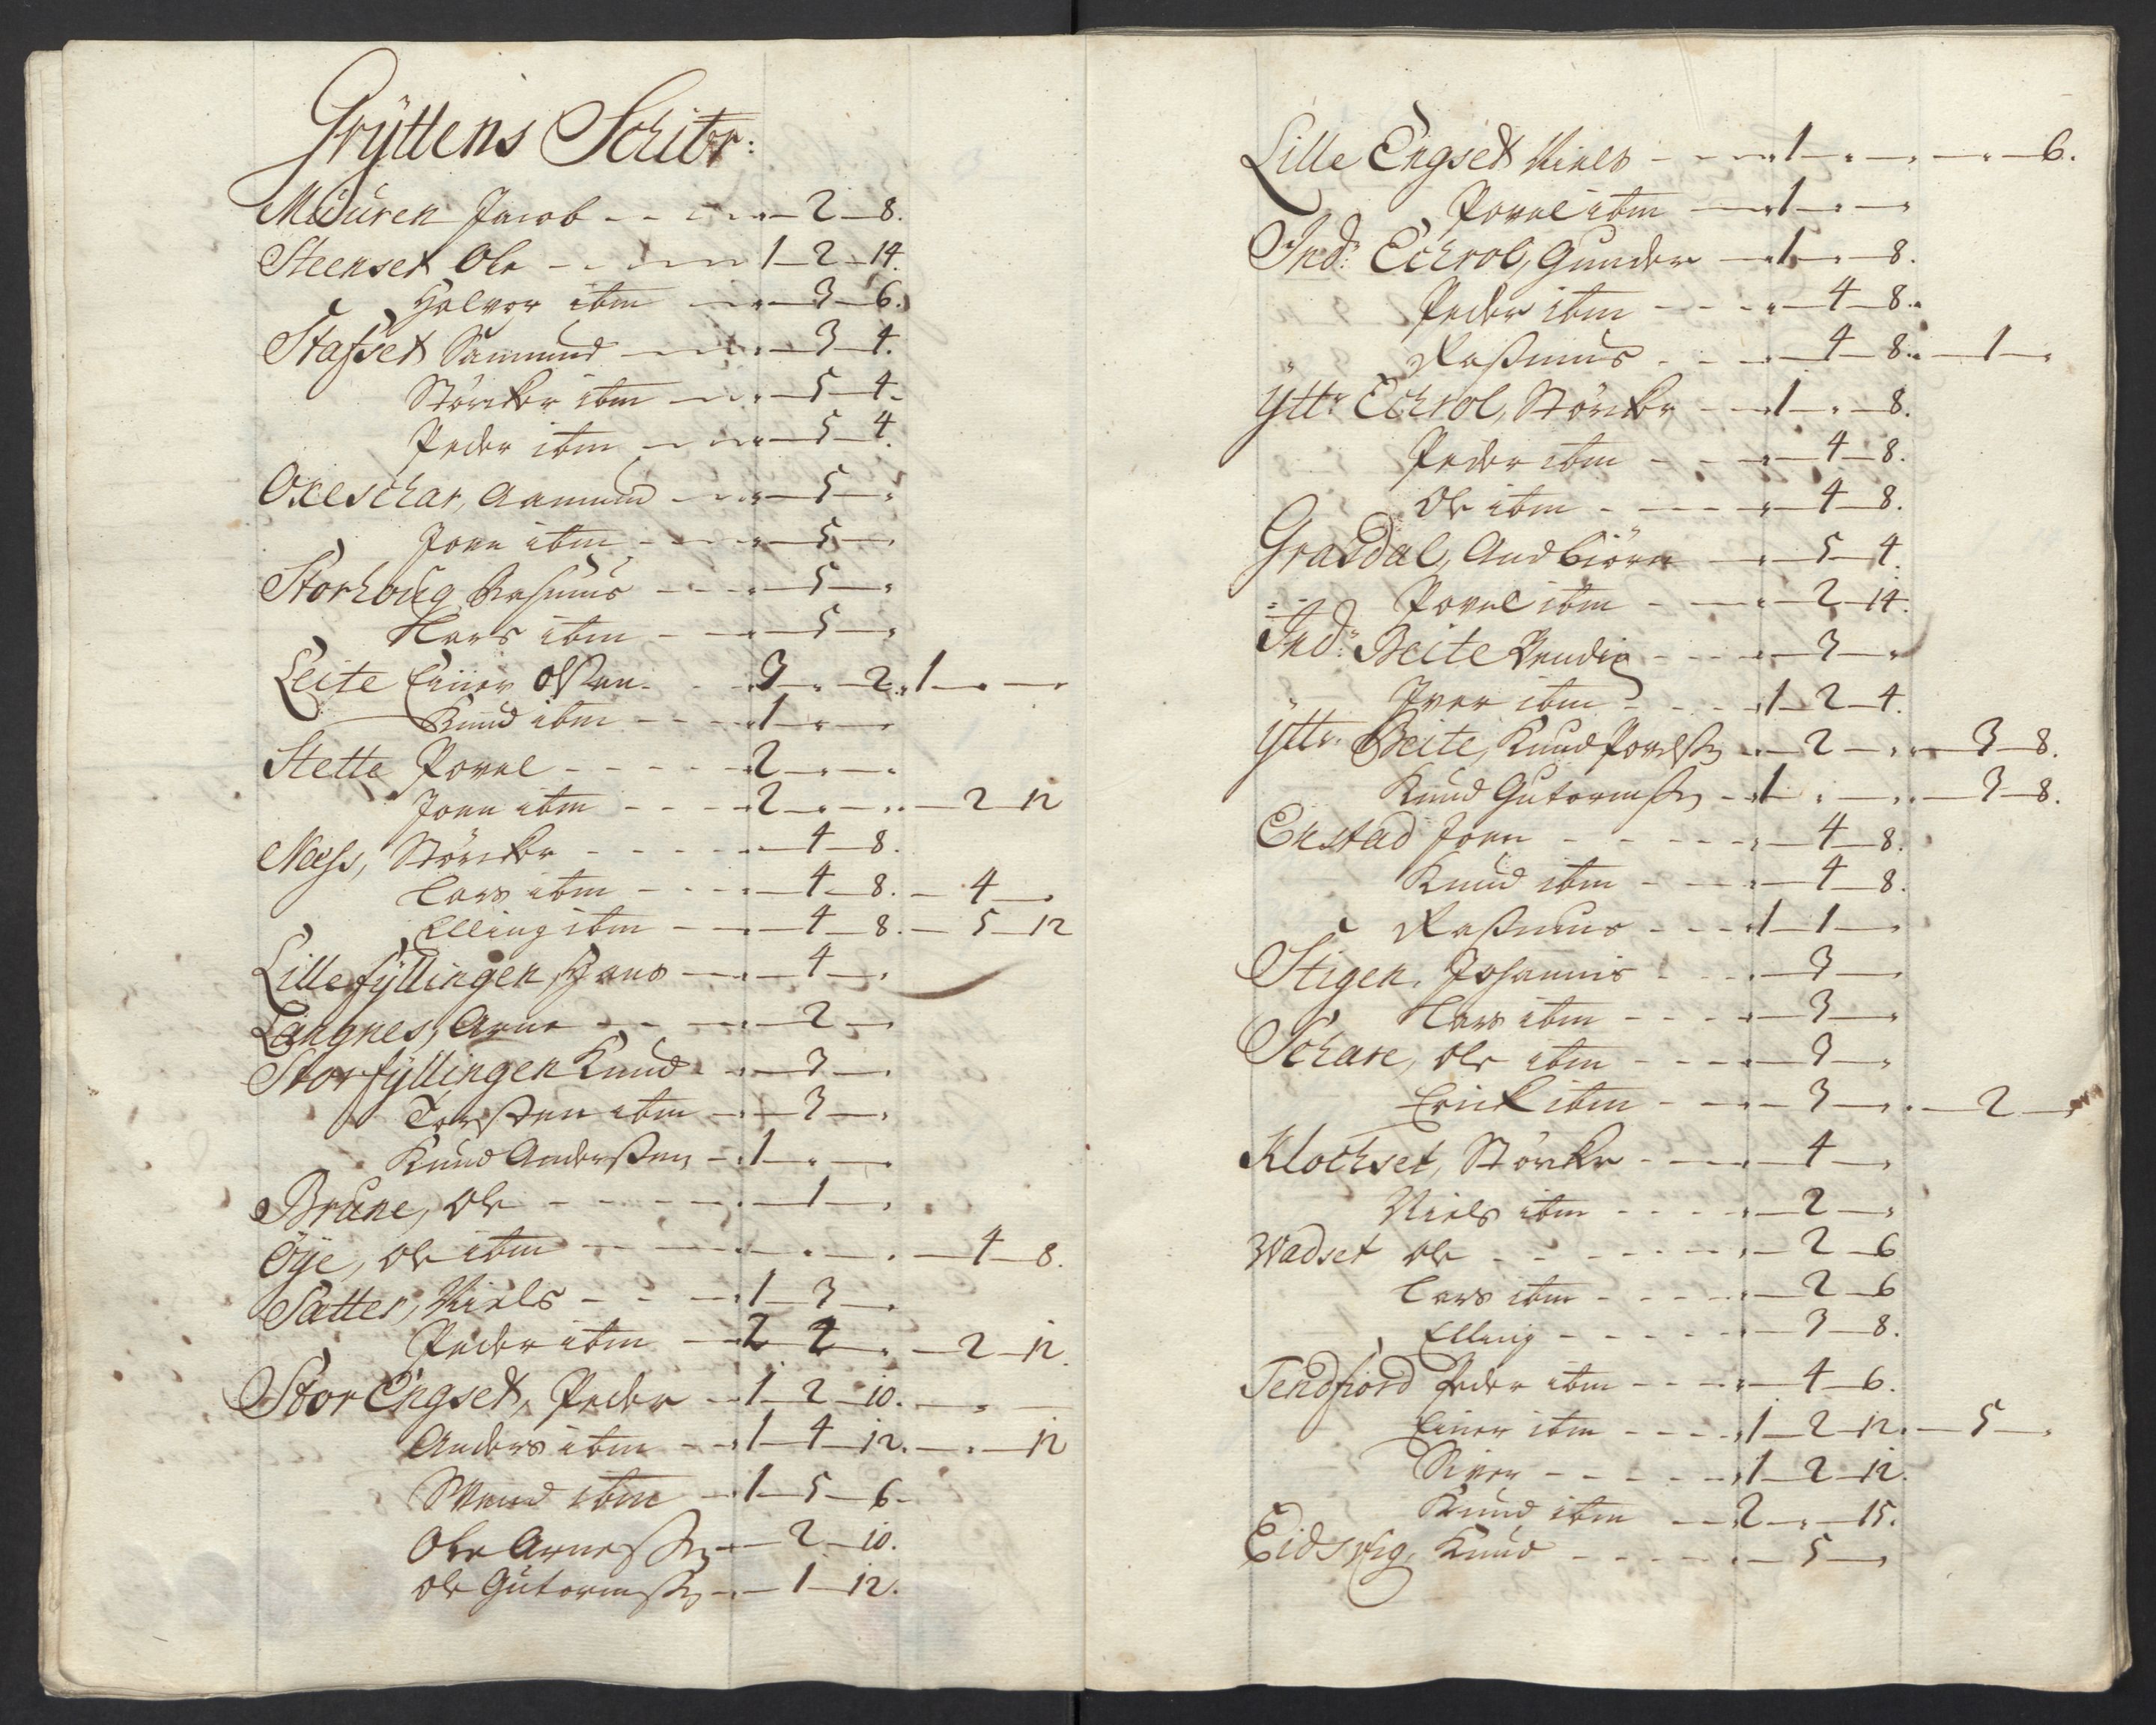 Gryttens Schibr:
Miouren Jacob - - - „ - 2 - 8.
Steenset Ole - - - - 1 - 2 - 14.
Halvor ibm - - „ - 3 - 6.
Stafset Samund - - „ - 3 - 4.
Störcker ibm - - „ - 5 - 4.
Peder ibm - - „ - 5 - 4.
Oxeschar, Aamund - - „ - 5 - „
Joen ibm - - - „ - 5 - „
Storhoug Rasmus - - - „ - 5 - „
Lars ibm - - - „ - 5 - „
Leite Einer Olsen - - 3 - „ - 2. „ 1 - „ - „
Knud ibm - - - 1 - „ - „
Stette Povel - - - - - 2 - „ - „
Joen ibm - - - - 2 - „ - „ - 2 - 12
Næss, Störcker - - - - „ - 4 - 8.
Lars ibm - - - „ - 4 - 8. - 4 - „
Elling ibm - - „ - 4 - 8. - 5 - 12
Lille fyllingen, Hans - „ - 4 - „
Langnes, Arne - - - „ - 2 - „
Storfyllingen Knud - „ - 3 - „
Torsten ibm - „ - 3 - „
Knud Andersen - 1 - „ - „
Brune, Ole - - - - - „ - 1 - „
Öye, Ole ibm - - - „ - „ - „ - 4 - 8.
Sætter, Niels - - - 1 - 3 - „
Peder ibm - - 2 - 2 - „ - 2 - 12.
Stor Engset, Peder - 1 - 2 - 10. - „ -
Anders ibm - - 1 - 4 - 12. - „ - 12
Svend ibm - 1 - 5 - 6 -
Ole Arness: - „ - 2 - 10.
Ole Gutormss: - „ - 1 - 12.
Lille Engset Niels - - - 1 - „ - „ - „ - 6.
Povel ibm - - 1 - „ - „
Ind: Echrol, Gunder - 1 - „ - 8.
Peder ibm - - - „ - 4 - 8.
„ Rasmus - - - „ - 4 - 8. „ - 1 - „
Yttr Echrol, Störcker - - 1 - „ - 8.
Peder ibm - - - „ - 4 - 8.
Ole ibm - - - - „ - 4 - 8.
Grasdal, Andbiörn - „ - 5 - 4.
„ - Povel ibm - - „ - 2 - 14.
Ind: Beite Bendig - - - „ - 3 - „
„ Iver ibm - - - - 1 - 2 - 4.
Yttr. Beite, Knud Povelss: „ - 2 - „ - „ - 3 - 8.
Knud Gutormss: - 1 - „ - „ - „ - 3 - 8.
Enstad Joen - - - - - „ - 4 - 8.
Knud ibm - - - „ - 4 - 8.
Rasmus - - - 1 - 1 - „
Stigen, Johannis - - - „ - 3 - „
Lars ibm - - - - „ - 3 - „
Schare, Ole ibm - - - „ - 3 - „
Erick ibm - - - „ - 3 - „ - 2 - „
Klochset, Störcker - - - „ - 4 - „
Niels ibm - - - - „ - 2 - „
Wadset Ole - - - - - - „ - 2 - 6
Lars ibm - - - - „ - 2 - 6
Elling - - - - - „ - 3 - 8.
Tendfiord Peder ibm - - - „ - 4 - 6.
Einer ibm - - - - 1 - 2 - 12. - 5 - „
Siver - - - - - 1 - 2 - 12.
Knud ibm - - 2 - „ - 15.
Eidsvig, Knud - - - - „ - 5 - „